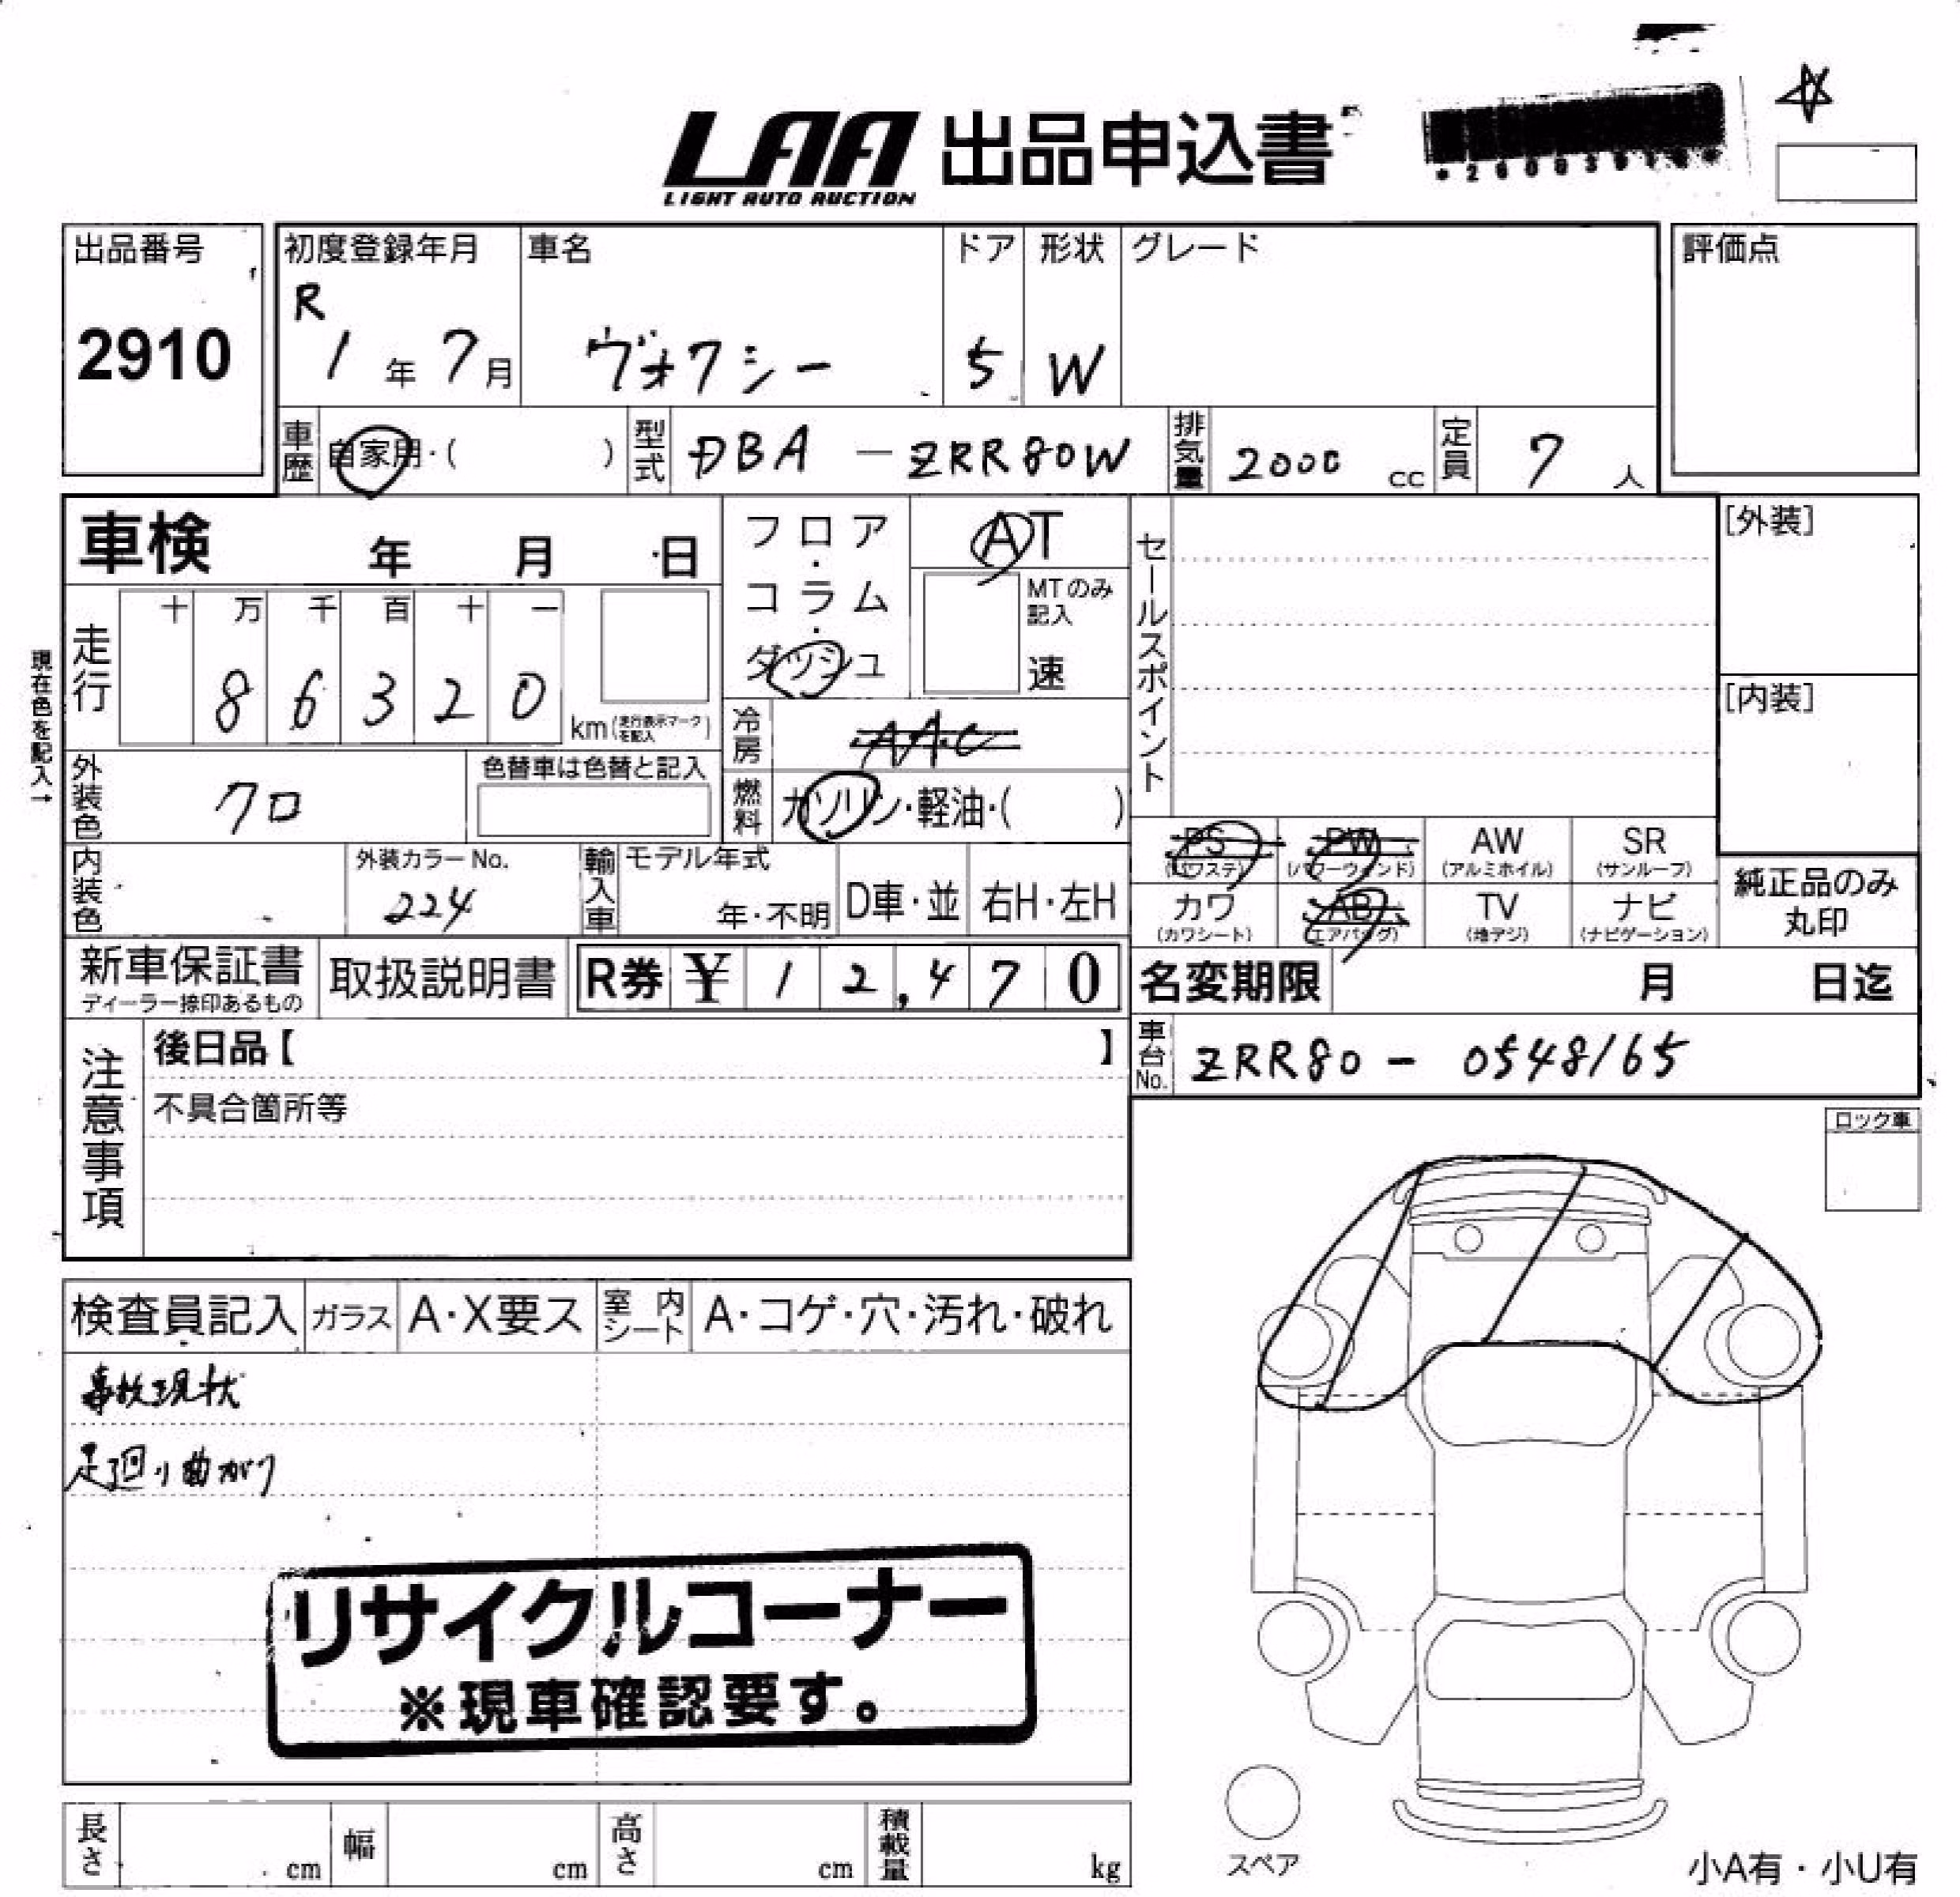 LAA 出品申込書
LIGHT AUTO AUCTION
出品番号
2910
初度登録年月
R
1年7月
車名
ヴォクシー
ドア
5
形状
W
グレード
評価点
車歴
自家用・( )
型式
DBA-ZRR80W
排気量
2000cc
定員
7人
車検 年 月 日
現在色を記入→
走行
十 万 千 百 十 一
8 6 3 2 0
km(走行表示マークを記入)
フロア・コラム・ダッシュ
AT
MTのみ記入
速
冷房
AAC
燃料
ガソリン・軽油・( )
外装色
クロ
色替車は色替と記入
内装色
外装カラーNo.
224
輸入車
モデル年式
年・不明
D車・並
右H・左H
セールスポイント
[外装]
[内装]
PS
(パワステ)
PW
(パワーウィンド)
AW
(アルミホイル)
SR
(サンルーフ)
カワ
(カワシート)
AB
(エアバッグ)
TV
(地デジ)
ナビ
(ナビゲーション)
純正品のみ
丸印
新車保証書
ディーラー捺印あるもの
取扱説明書
R券 ¥12,470
名変期限 月 日迄
注意事項
後日品【 】
不具合箇所等
車台No.
ZRR80-0548165
ロック車
検査員記入
ガラス
A・X要ス
室内シート
A・コゲ・穴・汚れ・破れ
事故現状
足廻り曲がり
リサイクルコーナー
※現車確認要す。
長さ cm
幅 cm
高さ cm
積載量 kg
スペア
小A有・小U有